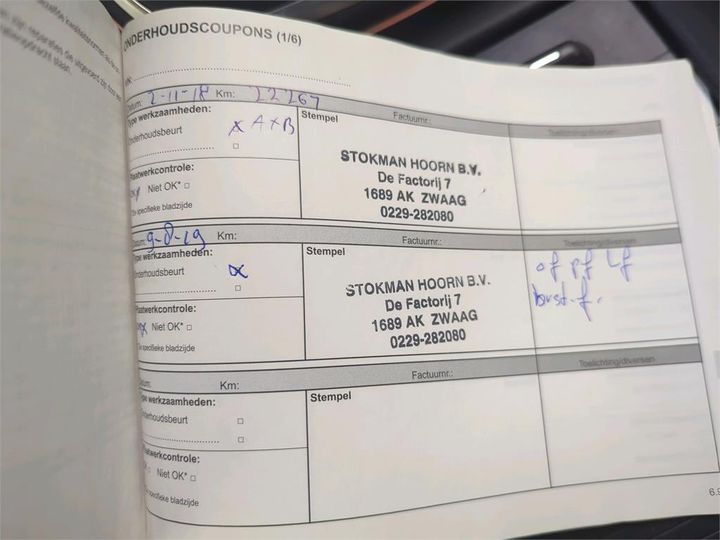 ONDERHOUDSCOUPONS (1/6)
Datum: 2-11-18 Km: 22267
Factuurnr.:
Toelichting/diversen
Type werkzaamheden:
Onderhoudsbeurt x A+B
Plaatwerkcontrole:
Niet OK* □
specifieke bladzijde
Stempel
STOKMAN HOORN B.V.
De Factorij 7
1689 AK ZWAAG
0229-282080
Datum: 9-8-19 Km:
Factuurnr.:
Toelichting/diversen
Type werkzaamheden:
Onderhoudsbeurt x
Plaatwerkcontrole:
x Niet OK* □
specifieke bladzijde
Stempel
STOKMAN HOORN B.V.
De Factorij 7
1689 AK ZWAAG
0229-282080
of pf Lf
Datum: Km:
Factuurnr.:
Toelichting/diversen
Type werkzaamheden:
Onderhoudsbeurt □
Plaatwerkcontrole:
Niet OK* □
specifieke bladzijde
Stempel